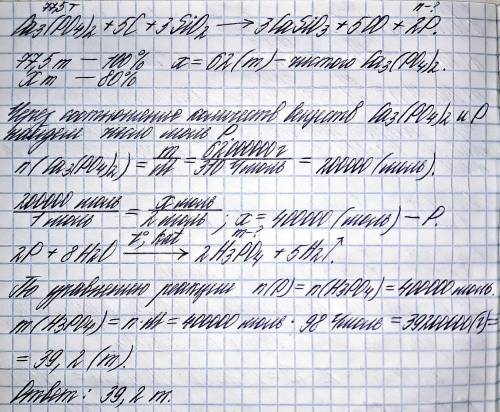 77,5 т n-?
Ca₃(PO₄)₂ + 5C + 3SiO₂ ⟶ 3CaSiO₃ + 5CO + 2P.
77,5 т — 100% x = 62 (т) – чистого Ca₃(PO₄)₂.
X т — 80%
Через соотношение количеств веществ Ca₃(PO₄)₂ и P
находим число моль P.
n(Ca₃(PO₄)₂) = m/M = 62000000 г/310 г/моль = 200000 (моль).
200000 моль/1 моль = x моль/2 моль; x = 400000 (моль) – P.
t°, kat m-?
2P + 8H₂O ⟶ 2H₃PO₄ + 5H₂↑.
По уравнению реакции n(P) = n(H₃PO₄) = 400000 моль.
m(H₃PO₄) = n·M = 400000 моль · 98 г/моль = 39200000 (г) =
= 39,2 (т).
Ответ: 39,2 т.